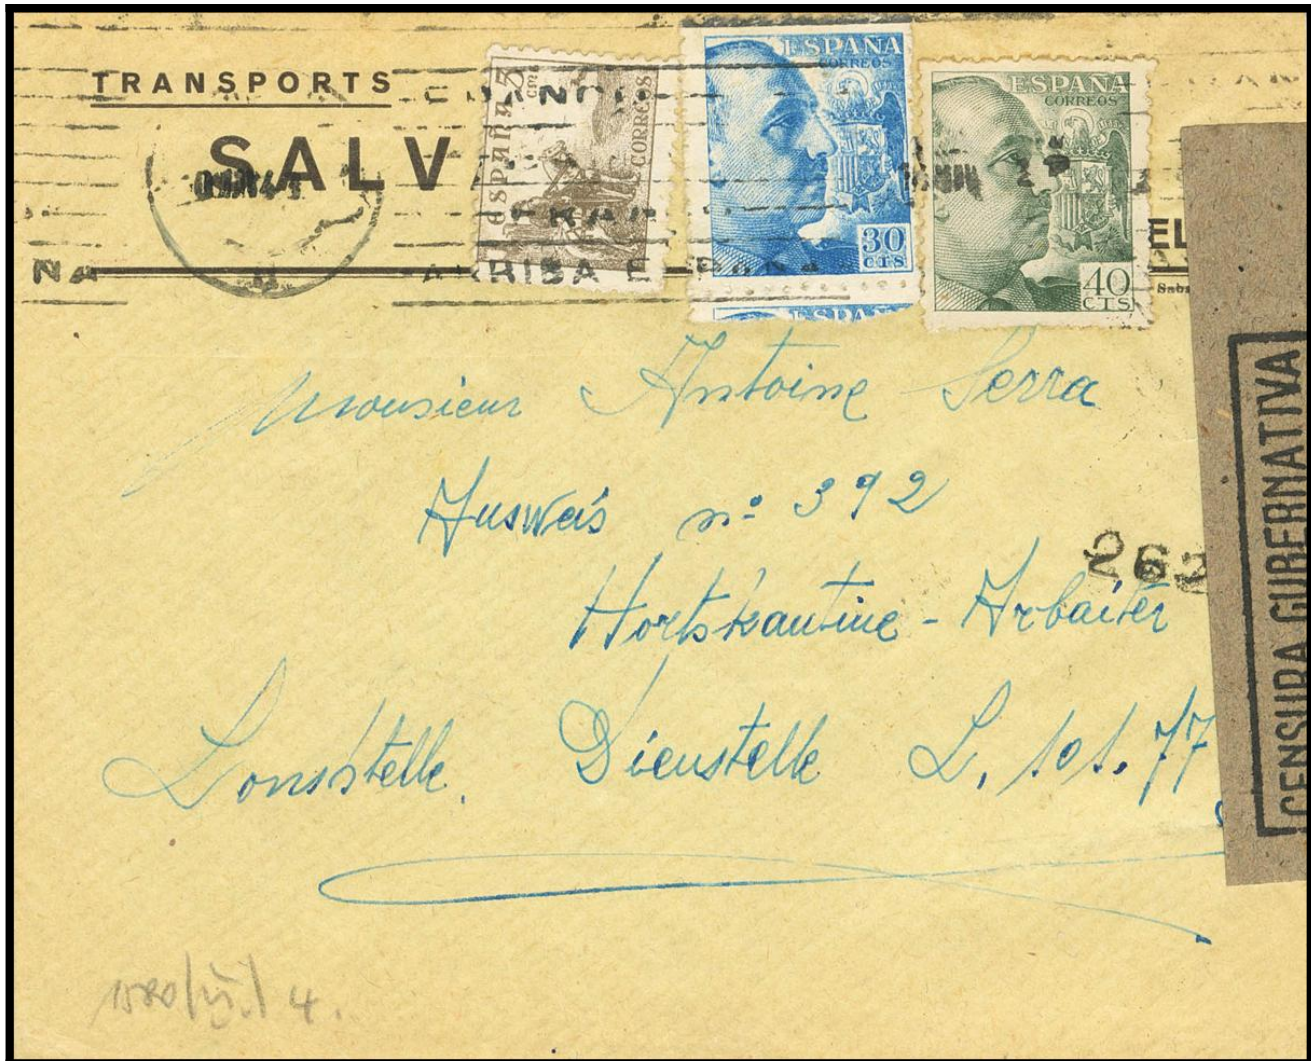 TRANSPORTS
SALV
ESPAÑA 5 CTMS
CORREOS
ESPAÑA
CORREOS
30
CTS
ESPAÑA
ESPAÑA
CORREOS
40
CTS
FRAN
ARRIBA E PAÑA
NA
EL
Monsieur Antoine Serra
Ausweis nº 392
262
Hortskantine - Arbaiter
Lonsstelle. Dienstelle L. 101.77
CENSURA GUBERNATIVA
4.